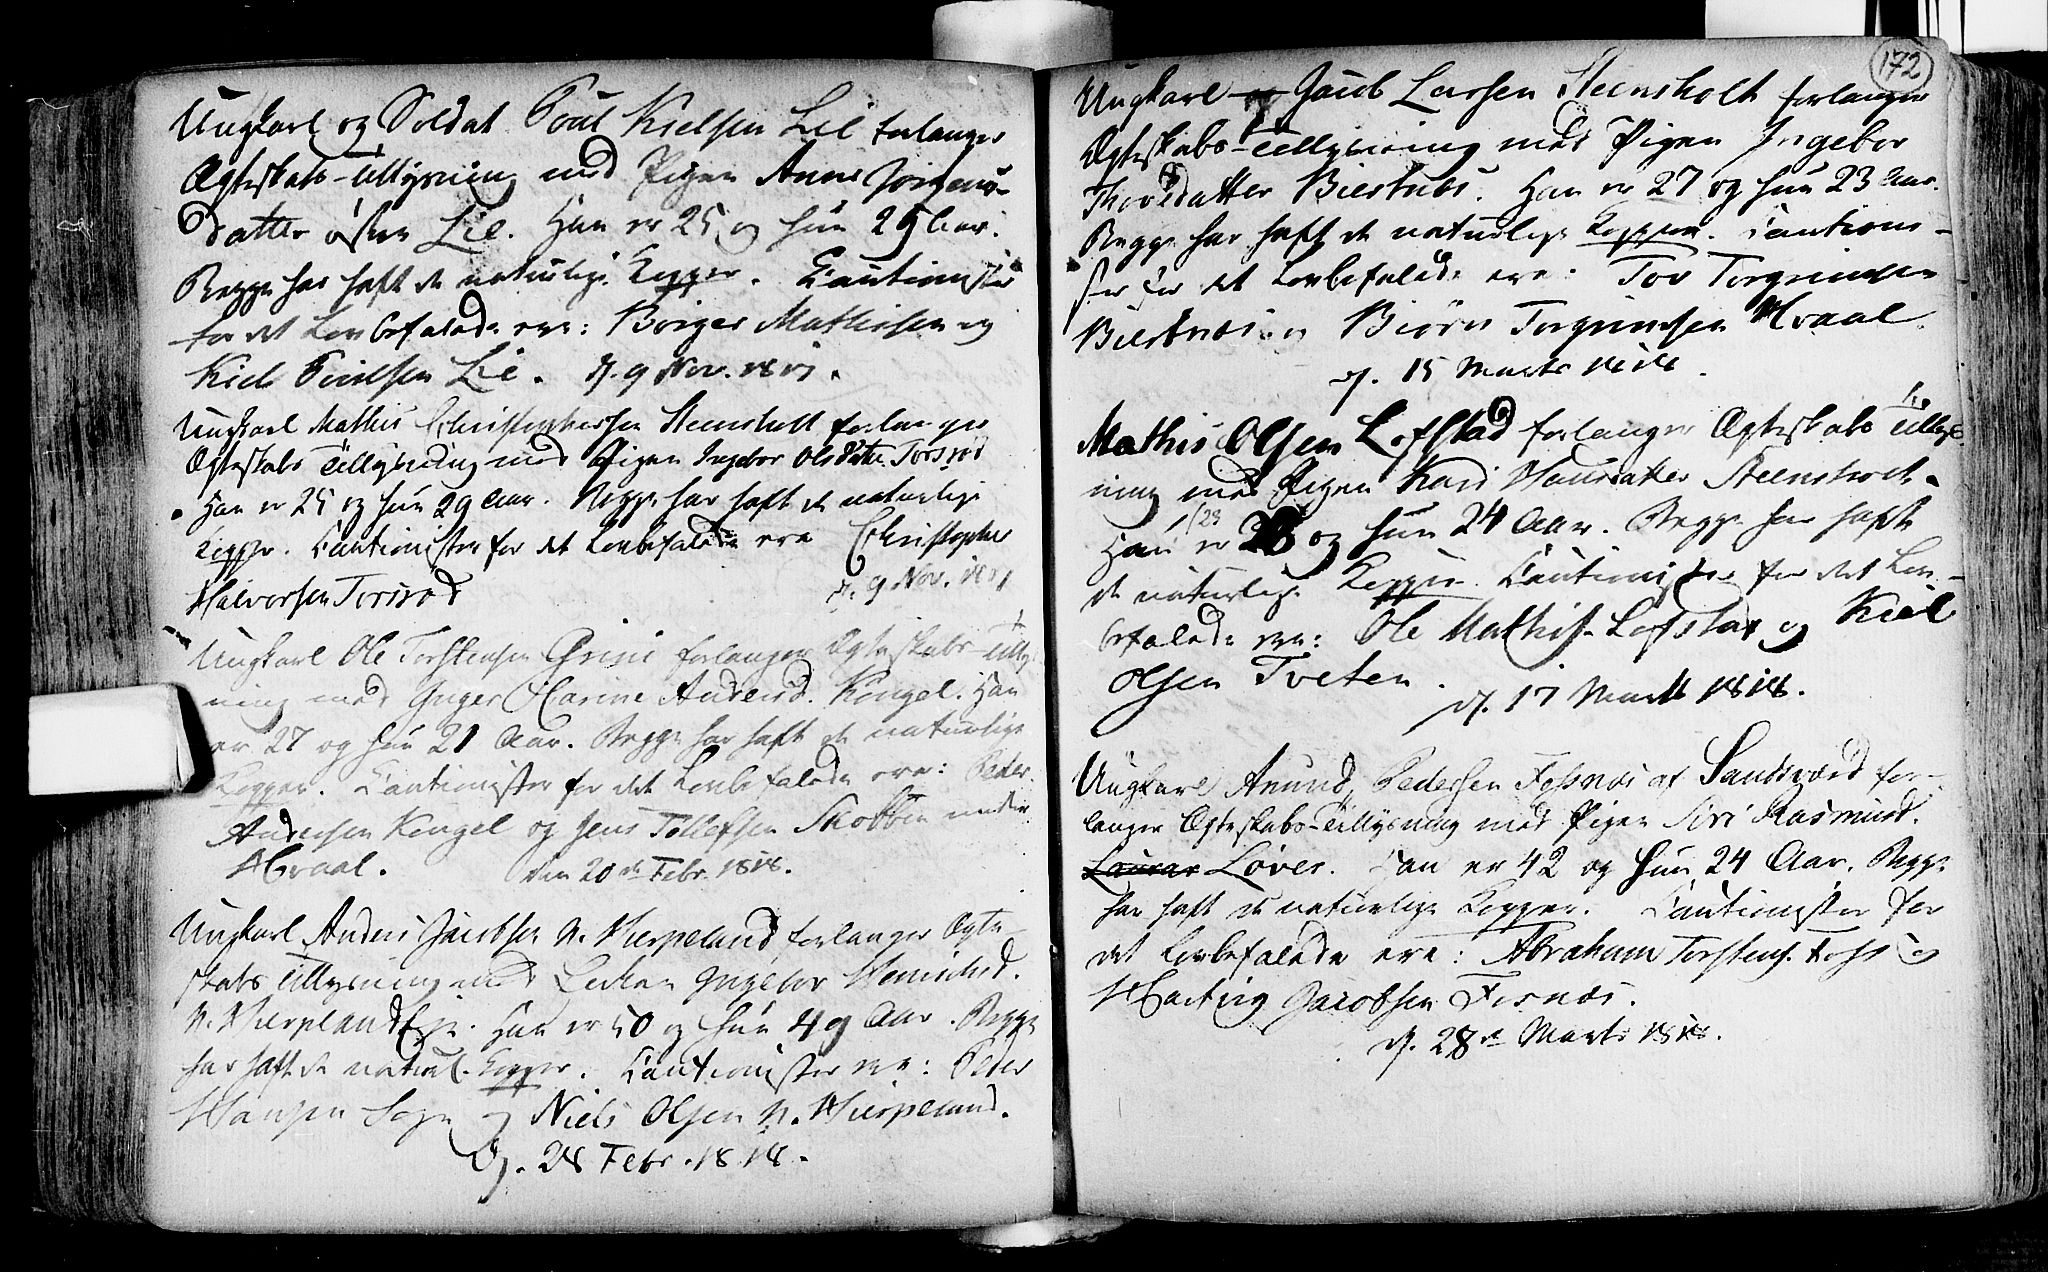 Ungkarl og Soldat Poul Kielsen Lie forlanger
Ægteskabs-Tillysning med Pigen Anne Jørgens-
datter østre Lie. Han er 25 og hun 29 Aar.
Begge har haft de naturlige Kopper. Cautionister
for det Lovbefalede ere: Børger Mathissen og
Kield Poulsen Lie. d. 9 Nov. 
Ungkarl Mathis Christophersen Steensholt forlanger
Ægteskabs Tillysning med Pigen Ingebor Olsdatter Torsrød
Han er 25 og hun 29 Aar. Begge har haft de naturlige
Kopper. Cautionister for det Lovbefalede ere Christopher
Halvorsen Torsrød d. 9 Nov.
Ungkarl Ole Torstensen Grini forlanger Ægteskabs-Tillys-
ning med Inger Marine Andersd. Kongel. Han
er 27 og hun 21 Aar. Begge har haft de naturlige
Kopper. Cautionister for det Lovbefalede ere: Peder
Andersen Kongel og Jens Tollefsen Skobbe nedre
Hvaal. den 20de Febr. 1818.
Ungkarl Anders Jacobsen N. Hierpeland forlanger Ægte-
skabs Tillysning med Enken Ingebor Henrichsd.
N. Hierpeland Eje. Han er 50 og hun 49 Aar. Begge
har haft de naturl. Kopper. Cautionister ere: Peder
Hansen og Niels Olsen N. Hierpeland.
D. 28 Febr. 1818.
172
Ungkarl og Jacob Larsen Steensholt forlanger
Ægteskabs-Tillysning med Pigen Ingebor
Thovsdatter Biertnæs. Han er 27 og hun 23 Aar.
Begge har haft de naturlige Kopper. Cautioni-
ster for det Lovbefalede ere: Tov Torgrimsen
Biertnæs og Biørn Torgrimsen Hvaal.
d. 15 Marts 1818.
Mathis Olsen Lofstad forlanger Ægteskabs Tillys-
ning med Pigen Kari Hansdatter Steensholt.
Han er 23 og hun 24 Aar. Begge har haft
de naturlige Kopper. Cautionister for det Lov-
befalede ere: Ole Mathis. Lofstad og Kield
Olsen Tveten.
d. 17 Marts 1818.
Ungkarl Anund Pedersen Fosnæs af Sandsværd for-
langer Ægteskabs-Tillysning med Pigen Siri Rasmusd.
Laurer Løver. Han er 42 og hun 24 Aar. Begge
har haft de naturlige Kopper. Cautionister for
det Lovbefalede ere: Abraham Torstens. Foss og
Harting Jacobsen Fosnæs.
d. 28de Marts 1818.